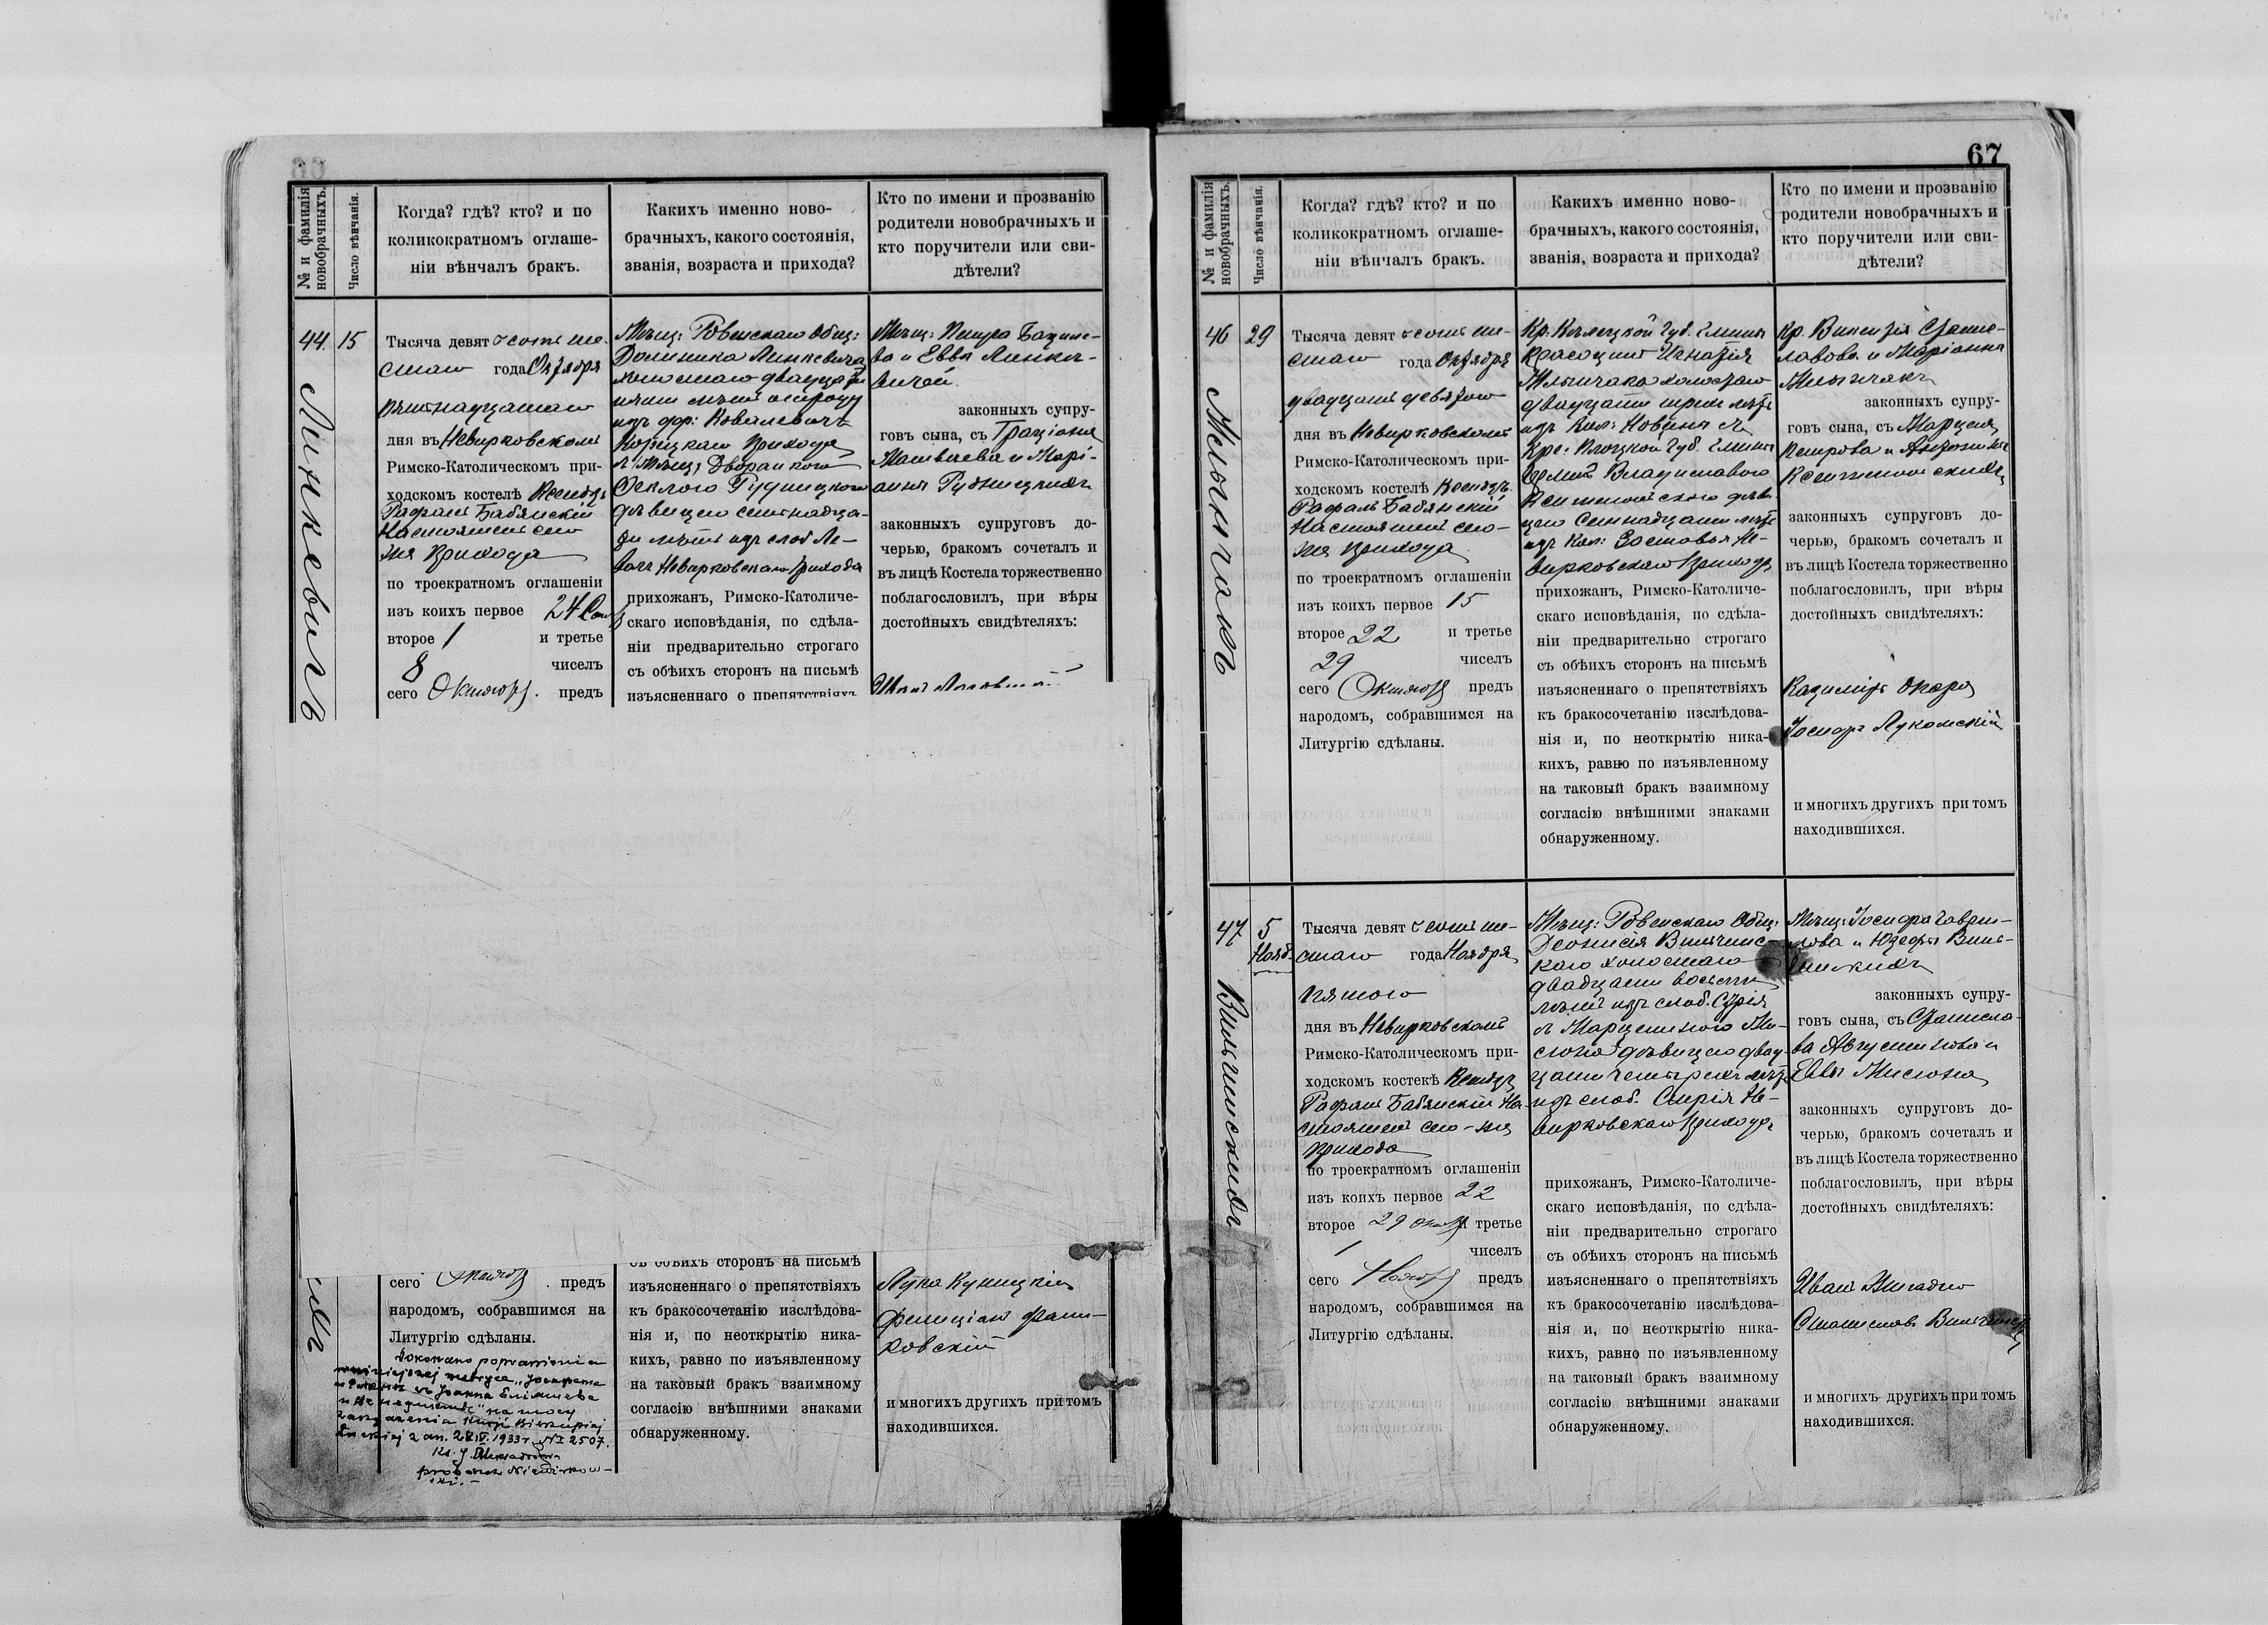 66
№ и фамилія
новобрачныхъ.
Число вѣнчанія.
Когда? гдѣ? кто? и по
коликократномъ оглаше-
ніи вѣнчалъ бракъ.
Какихъ именно ново-
брачныхъ, какого состоянія,
званія, возраста и прихода?
Кто по имени и прозванію
родители новобрачныхъ и
кто поручители или сви-
дѣтели?
44.
Линкевичъ
15
Тысяча девятсотъ ше-
стаго года Октября
пятнадцатаго
дня въ Невирковскомъ
Римско-Католическомъ при-
ходскомъ костелѣ Ксендзъ
Рафалъ Бабянскій
Настоятель сего-
же прихода
по троекратномъ оглашеніи
изъ коихъ первое 24 Сент
второе 1 и третье
8 чиселъ
сего Октября. предъ
Мѣщ: Ровенскаго Общ:
Доминика Линкевича
холостаго двадцати
лѣтъ
изъ Ковалевичъ
Корецкаго прихода
съ Мѣщ:
Феклою Рудницкою
дѣвицею семнадца-
ти лѣтъ изъ слоб Ле-
Невирковскаго прихода
прихожанъ, Римско-Католиче-
скаго исповѣданія, по сдѣла-
ніи предварительно строгаго
съ обѣихъ сторонъ на письмѣ
изъясненнаго о препятствіяхъ
Мѣщ: Петра
ва и Еввы Линке-
вичей.
законныхъ супру-
говъ сына, съ Граціона
Матвѣева и Марі-
анны Рудницкихъ
законныхъ супруговъ до-
черью, бракомъ сочеталъ и
въ лицѣ Костела торжественно
поблагословилъ, при вѣры
достойныхъ свидѣтеляхъ:
сего Октября . предъ
народомъ, собравшимся на
Литургію сдѣланы.
Dokonano poprawienia
niniejszej metryce
na mocy
Kurji Biskupiej
1933 r. № 2507.
съ обѣихъ сторонъ на письмѣ
изъясненнаго о препятствіяхъ
къ бракосочетанію изслѣдова-
нія и, по неоткрытію ника-
кихъ, равно по изъявленному
на таковый бракъ взаимному
согласію внѣшними знаками
обнаруженному.
Лука Куницкій
Фелиціанъ
ковскій
и многихъ другихъ при томъ
находившихся.
67
№ и фамилія
новобрачныхъ.
Число вѣнчанія.
Когда? гдѣ? кто? и по
коликократномъ оглаше-
ніи вѣнчалъ бракъ.
Какихъ именно ново-
брачныхъ, какого состоянія,
званія, возраста и прихода?
Кто по имени и прозванію
родители новобрачныхъ и
кто поручители или сви-
дѣтели?
46
Млынчакъ
29
Тысяча девятсотъ ше-
стаго года Октября
двадцать девятого
дня въ Невирковскомъ
Римско-Католическомъ при-
ходскомъ костелѣ Ксендзъ
Рафалъ Бабянскій
Настоятель сего-
же прихода
по троекратномъ оглашеніи
изъ коихъ первое 15
второе 22 и третье
29 чиселъ
сего Октября предъ
народомъ, собравшимся на
Литургію сдѣланы.
Кр. Кѣлецкой Губ. Гмины
Красоцинъ Игнатія
Млынчака холостаго
двадцати трехъ лѣтъ
изъ Кол: Новины съ
Кре: Плоцкой Губ. Гмины
Владиславою
дѣви-
цею Семнадцати лѣтъ
изъ Кол: Зоставья Не-
вирковскаго прихода
прихожанъ, Римско-Католиче-
скаго исповѣданія, по сдѣла-
ніи предварительно строгаго
съ обѣихъ сторонъ на письмѣ
изъясненнаго о препятствіяхъ
къ бракосочетанію изслѣдова-
нія и, по неоткрытію ника-
кихъ, равно по изъявленному
на таковый бракъ взаимному
согласію внѣшними знаками
обнаруженному.
Кр. Викентія Стани-
славова и Маріанны
Млынчакъ
законныхъ супру-
говъ сына, съ Марцела
Петрова и Антонины
законныхъ супруговъ до-
черью, бракомъ сочеталъ и
въ лицѣ Костела торжественно
поблагословилъ, при вѣры
достойныхъ свидѣтеляхъ:
Казиміръ
Іосифъ Лукомскій
и многихъ другихъ при томъ
находившихся.
47
Вильчинскихъ
5
Нояб.
Тысяча девятсотъ ше-
стаго года Ноября
пятого
дня въ Невирковскомъ
Римско-Католическомъ при-
ходскомъ костекѣ Ксендзъ
Рафалъ Бабянскій На-
стоятель сего-же
прихода
по троекратномъ оглашеніи
изъ коихъ первое 22
второе 29 Октяб и третье
1 чиселъ
сего Ноября предъ
народомъ, собравшимся на
Литургію сдѣланы.
Мѣщ: Ровенскаго Общ:
Діонисія Вильчинс-
каго холостаго
двадцати восьми
лѣтъ изъ слоб. Сторія
съ Марцелиною Ми-
дѣвицею двад-
цати четырехъ лѣтъ
изъ слоб. Не-
вирковскаго прихода
прихожанъ, Римско-Католиче-
скаго исповѣданія, по сдѣла-
ніи предварительно строгаго
съ обѣихъ сторонъ на письмѣ
изъясненнаго о препятствіяхъ
къ бракосочетанію изслѣдова-
нія и, по неоткрытію ника-
кихъ, равно по изъявленному
на таковый бракъ взаимному
согласію внѣшними знаками
обнаруженному.
Мѣщ: Іосифа Гаври-
лова и Юзефы Виль-
чинскихъ
законныхъ супру-
говъ сына, съ Станисла-
ва Августинова и
Еввы
законныхъ супруговъ до-
черью, бракомъ сочеталъ и
въ лицѣ Костела торжественно
поблагословилъ, при вѣры
достойныхъ свидѣтеляхъ:
Иванъ
Станиславъ Вильчинскій
и многихъ другихъ при томъ
находившихся.